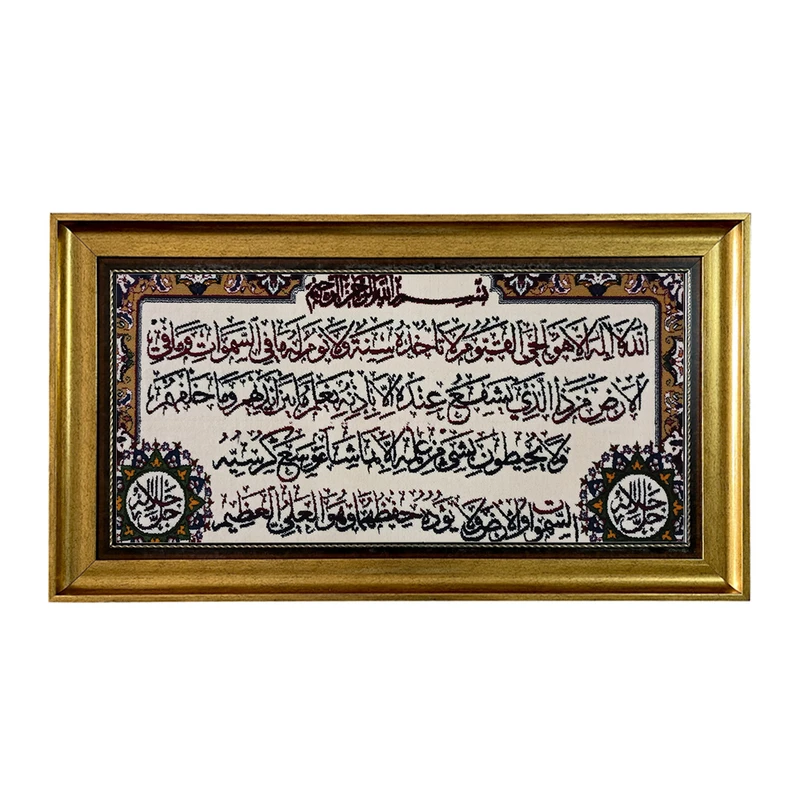 بسم الله الرحمن الرحيم
الله لا إله إلا هو الحي القيوم لا تأخذه سنة ولا نوم له ما في السموات وما في
الأرض من ذا الذي يشفع عنده إلا بإذنه يعلم ما بين أيديهم وما خلفهم
ولا يحيطون بشيء من علمه إلا بما شاء وسع كرسيه
السموات والأرض ولا يؤده حفظهما وهو العلي العظيم
جل جلاله
جل جلاله